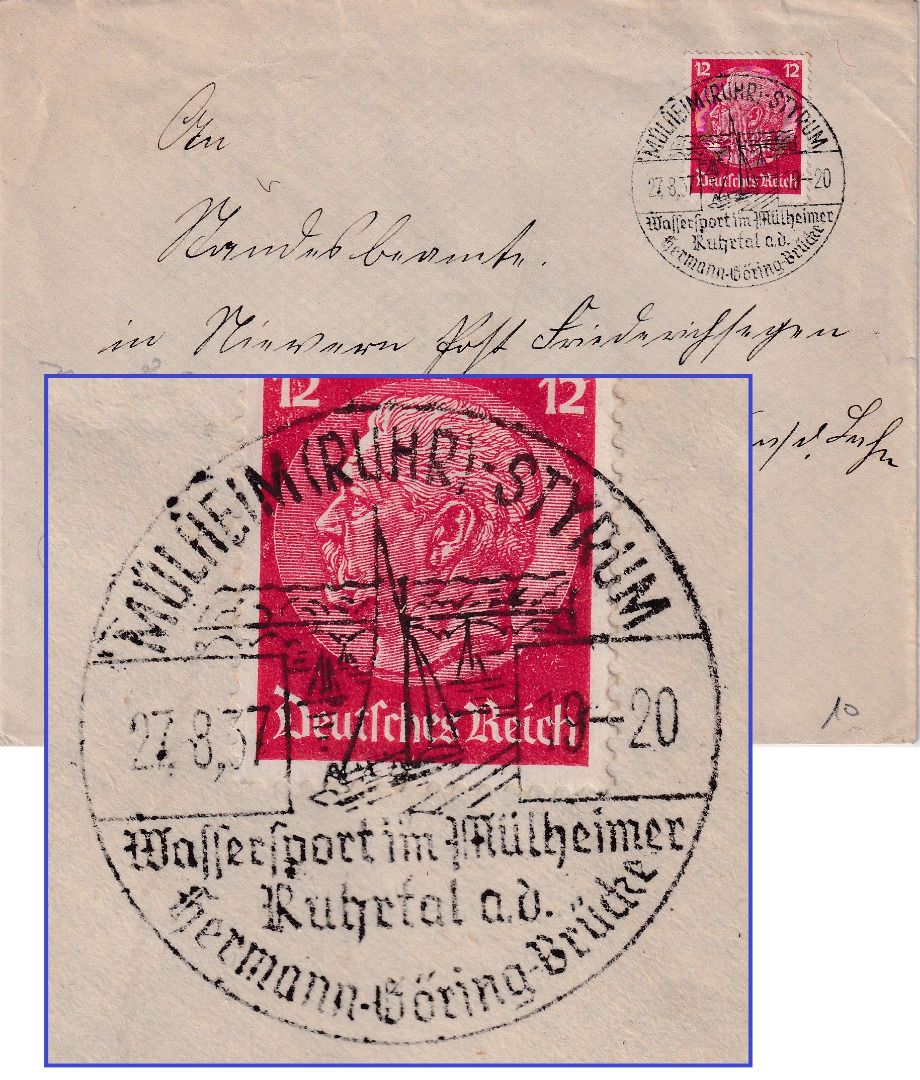 12 12
MÜLHEIM(RUHR)-STYRUM
27.8.37 19-20
Deutsches Reich
Wassersport im Mülheimer
Ruhrtal a.d.
Hermann-Göring-Brücke
An
Standesbeamte.
in Nievern Post Friederichssegen
a/d. Lahn
10
12 12
MÜLHEIM(RUHR)-STYRUM
27.8.37 19-20
Deutsches Reich
Wassersport im Mülheimer
Ruhrtal a.d.
Hermann-Göring-Brücke